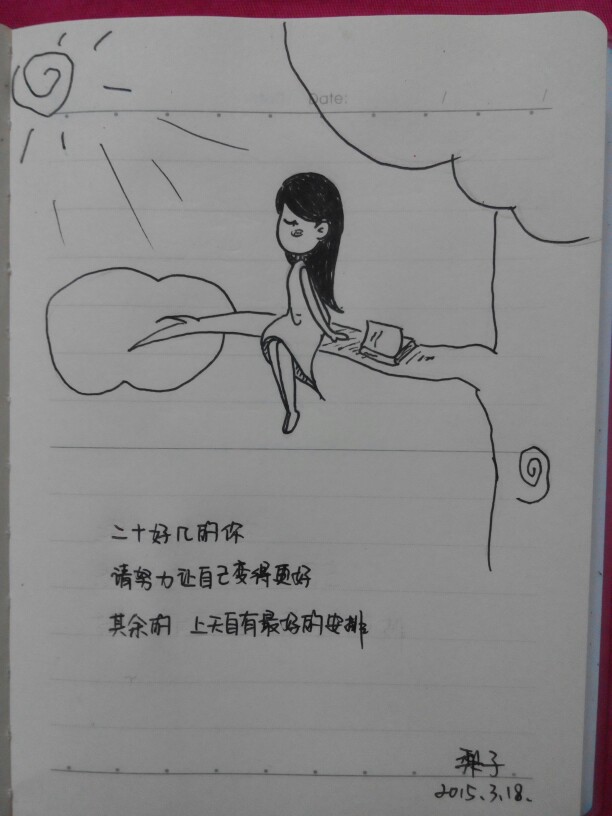 Date:
二十好几的你
请努力让自己变得更好
其余的 上天自有最好的安排
梨子
2015.3.18.